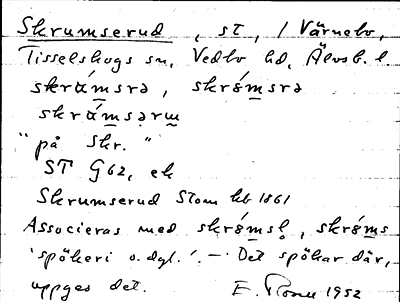 Skrumserud, st, / Värnebo,
Tisselskogs sn, Vedbo hd, Älvsb. l.
skrám̲srə, skrɵ́m̲srə
skrám̲sərɯ̲
"på Skr."
ST G62, ek
Skrumserud Stom kb 1861
Associeras med skrɵ́m̲sl̥, skrɵ́m̲s
'spökeri o. dgl.'. — Det spökar där,
uppges det. E. 1952